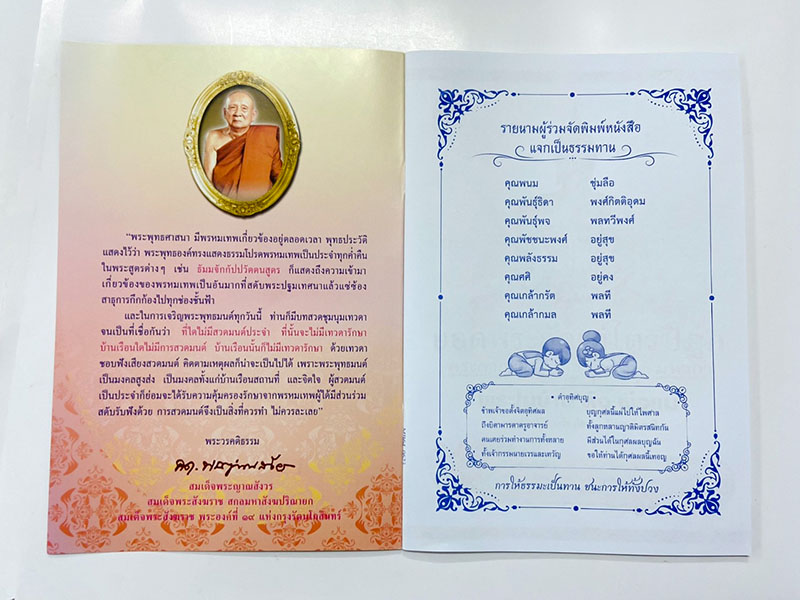 "พระพุทธศาสนา มีพรหมเทพเกี่ยวข้องอยู่ตลอดเวลา พุทธประวัติ
แสดงไว้ว่า พระพุทธองค์ทรงแสดงธรรมโปรดพรหมเทพเป็นประจำทุกค่ำคืน
ในพระสูตรต่างๆ เช่น ธัมมจักกัปปวัตตนสูตร ก็แสดงถึงความเข้ามา
เกี่ยวข้องของพรหมเทพเป็นอันมากที่สดับพระปฐมเทศนาแล้วแซ่ซ้อง
สาธุการกึกก้องไปทุกช่องชั้นฟ้า
และในการเจริญพระพุทธมนต์ทุกวันนี้ ท่านก็มีบทสวดชุมนุมเทวดา
จนเป็นที่เชื่อกันว่า ที่ใดไม่มีสวดมนต์ประจำ ที่นั้นจะไม่มีเทวดารักษา
บ้านเรือนใดไม่มีการสวดมนต์ บ้านเรือนนั้นก็ไม่มีเทวดารักษา ด้วยเทวดา
ชอบฟังเสียงสวดมนต์ คิดตามเหตุผลก็น่าจะเป็นไปได้ เพราะพระพุทธมนต์
เป็นมงคลสูงส่ง เป็นมงคลทั้งแก่บ้านเรือนสถานที่ และจิตใจ ผู้สวดมนต์
เป็นประจำก็ย่อมจะได้รับความคุ้มครองรักษาจากพรหมเทพผู้ได้มีส่วนร่วม
สดับรับฟังด้วย การสวดมนต์จึงเป็นสิ่งที่ควรทำ ไม่ควรละเลย"
พระวรคติธรรม
สมเด็จพระญาณสังวร
สมเด็จพระสังฆราช สกลมหาสังฆปริณายก
สมเด็จพระสังฆราช พระองค์ที่ ๑๙ แห่งกรุงรัตนโกสินทร์
รายนามผู้ร่วมจัดพิมพ์หนังสือ
แจกเป็นธรรมทาน
คุณพนม ชุ่มลือ
คุณพันธุ์ธิดา พงศ์กิตติอุดม
คุณพันธุ์พจ พลทวีพงศ์
คุณพัชชนะพงศ์ อยู่สุข
คุณพลังธรรม อยู่สุข
คุณศศิ อยู่คง
คุณเกล้ากรัต พลที
คุณเกล้ากมล พลที
คำอุทิศบุญ
ข้าพเจ้าขอตั้งจิตอุทิศผล บุญกุศลนี้แผ่ไปให้ไพศาล
ถึงบิดามารดาครูอาจารย์ ทั้งลูกหลานญาติมิตรสนิทกัน
คนเคยร่วมทำงานการทั้งหลาย มีส่วนได้ในกุศลผลบุญฉัน
ทั้งเจ้ากรรมนายเวรและเทวัญ ขอให้ท่านได้กุศลผลนี้เทอญ
การให้ธรรมะเป็นทาน ชนะการให้ทั้งปวง